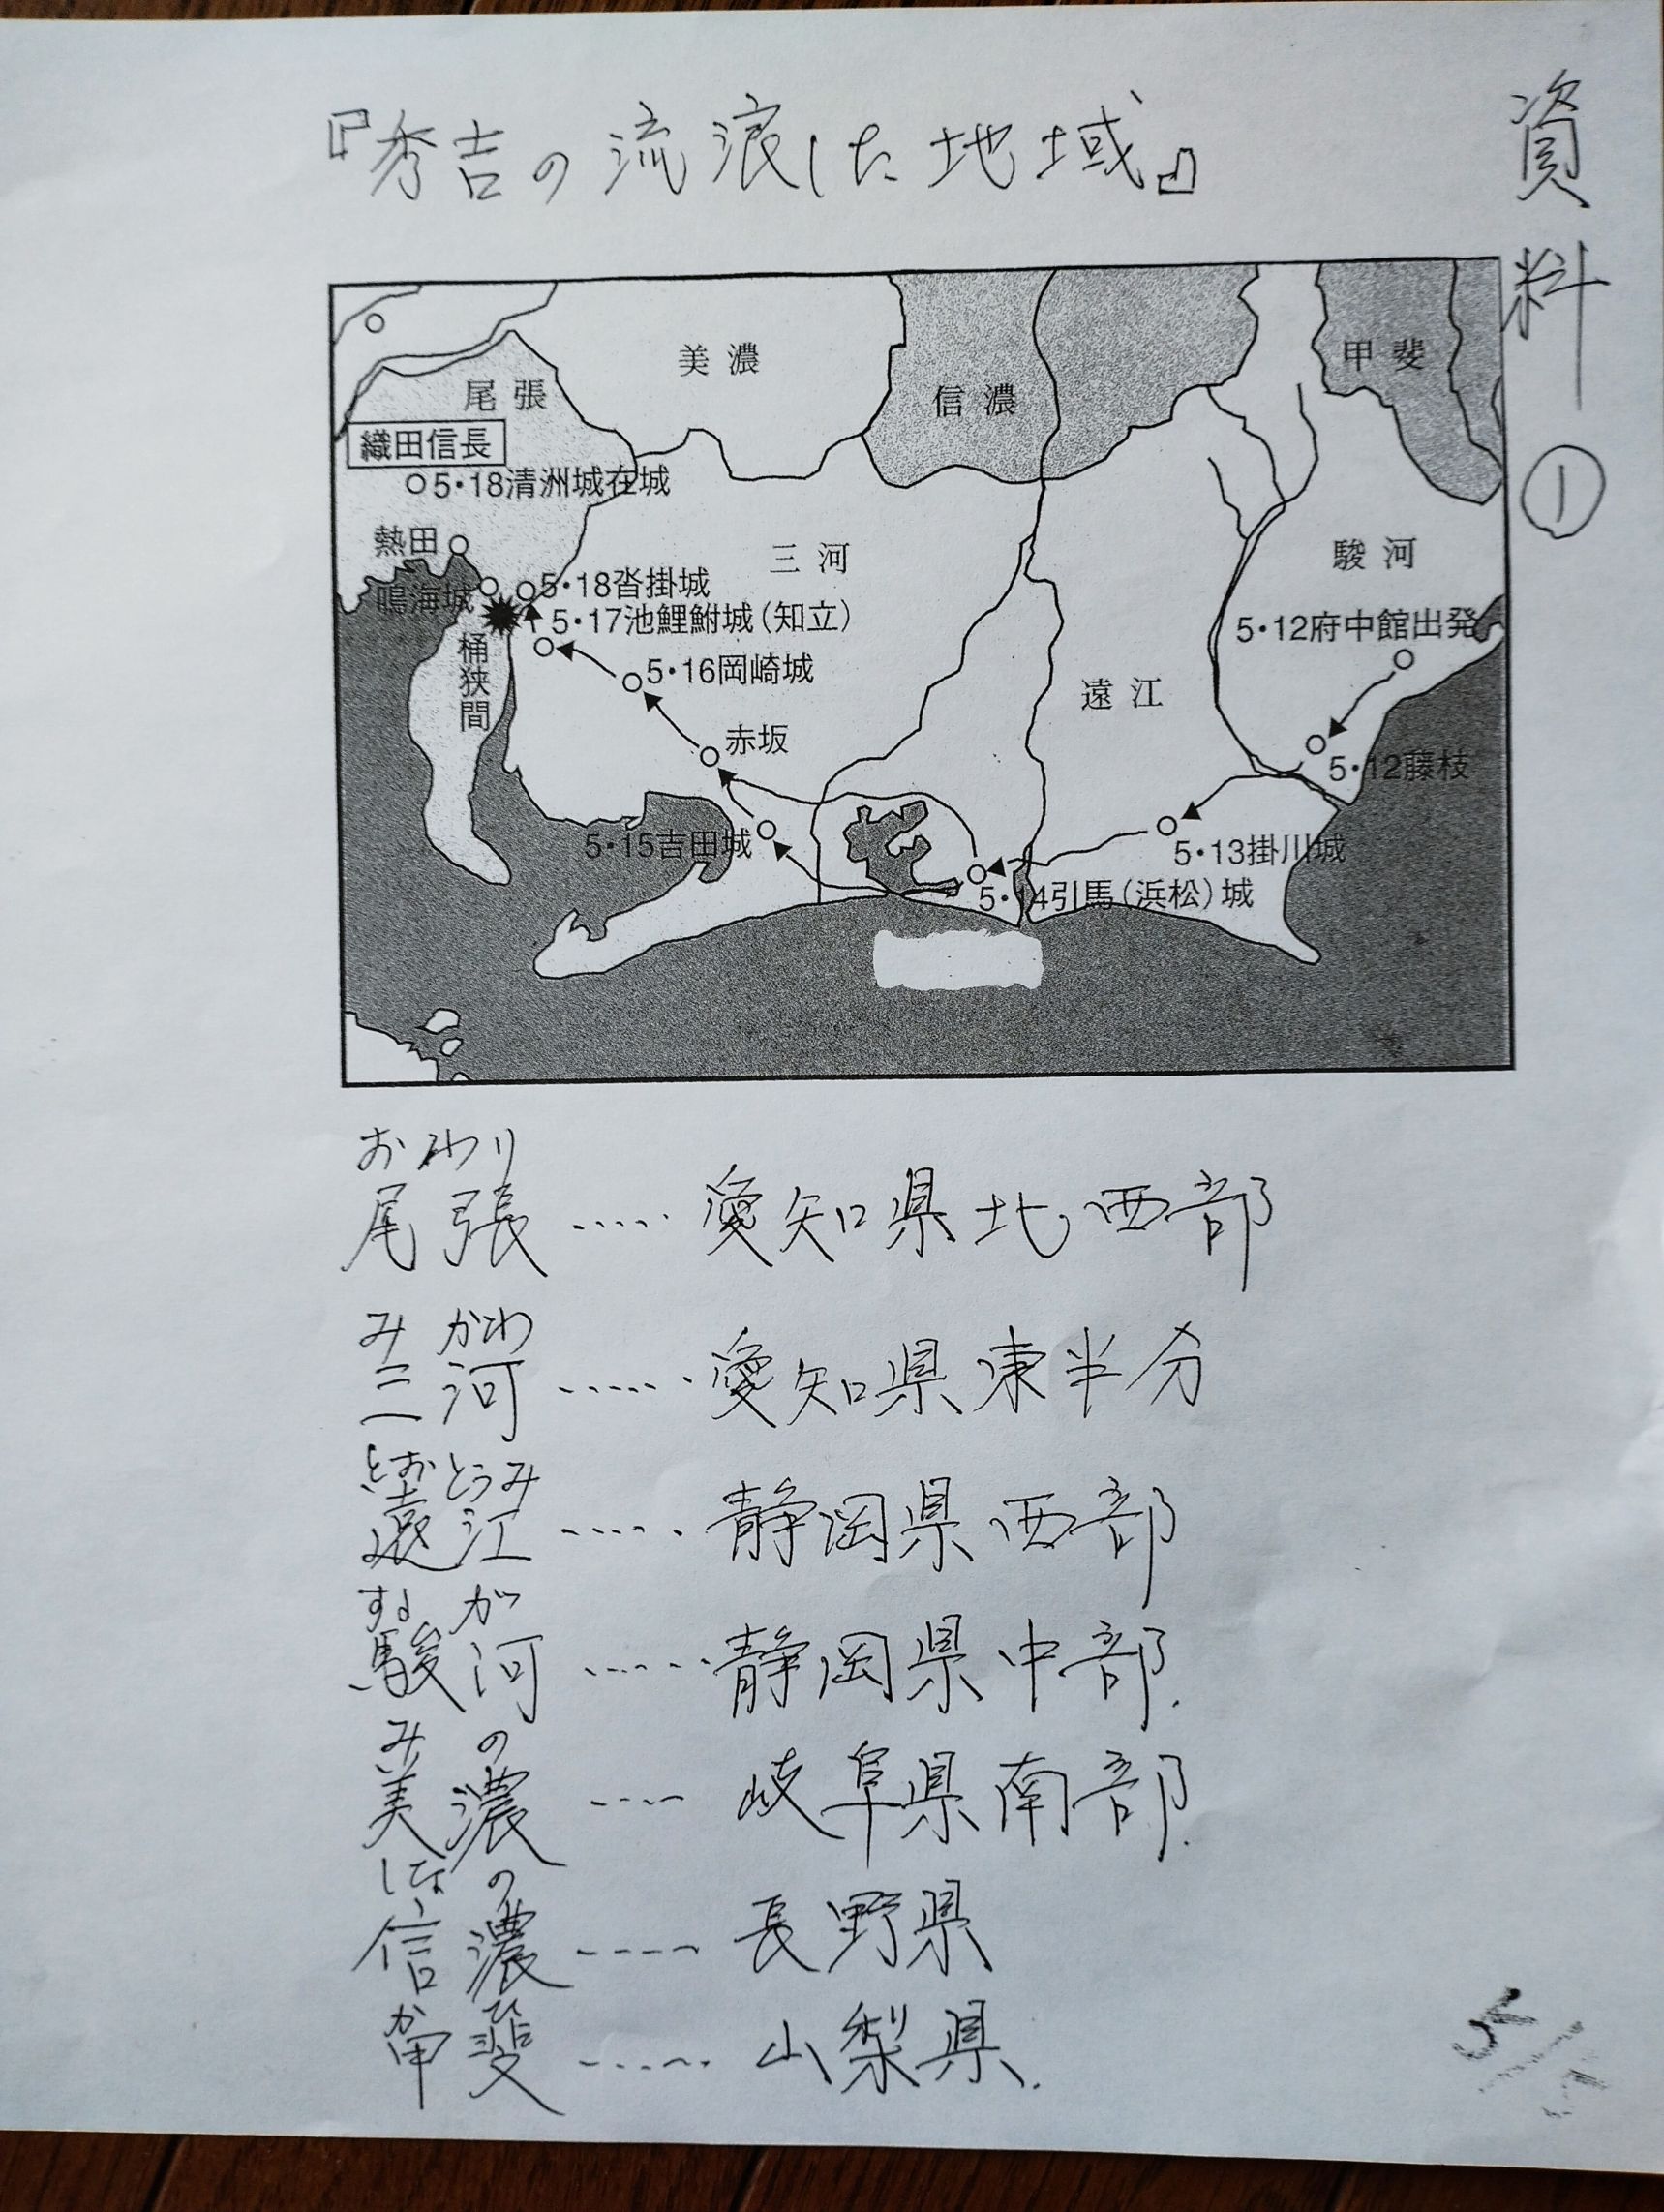 資料①
『秀吉の流浪した地域』
美濃
尾張
信濃
甲斐
織田信長
5・18清洲城在城
熱田
三河
駿河
鳴海城
5・18沓掛城
5・17池鯉鮒城(知立)
5・12府中館出発
桶狭間
5・16岡崎城
遠江
赤坂
5・12藤枝
5・15吉田城
5・13掛川城
5・14引馬(浜松)城
おわり
尾張‥‥‥愛知県北西部
みかわ
三河‥‥‥愛知県東半分
とおとうみ
遠江‥‥‥静岡県西部
するが
駿河‥‥‥静岡県中部.
みの
美濃‥‥静岡県南部.
しなの
信濃‥‥長野県
かひ
甲斐‥‥‥山梨県.
5/5